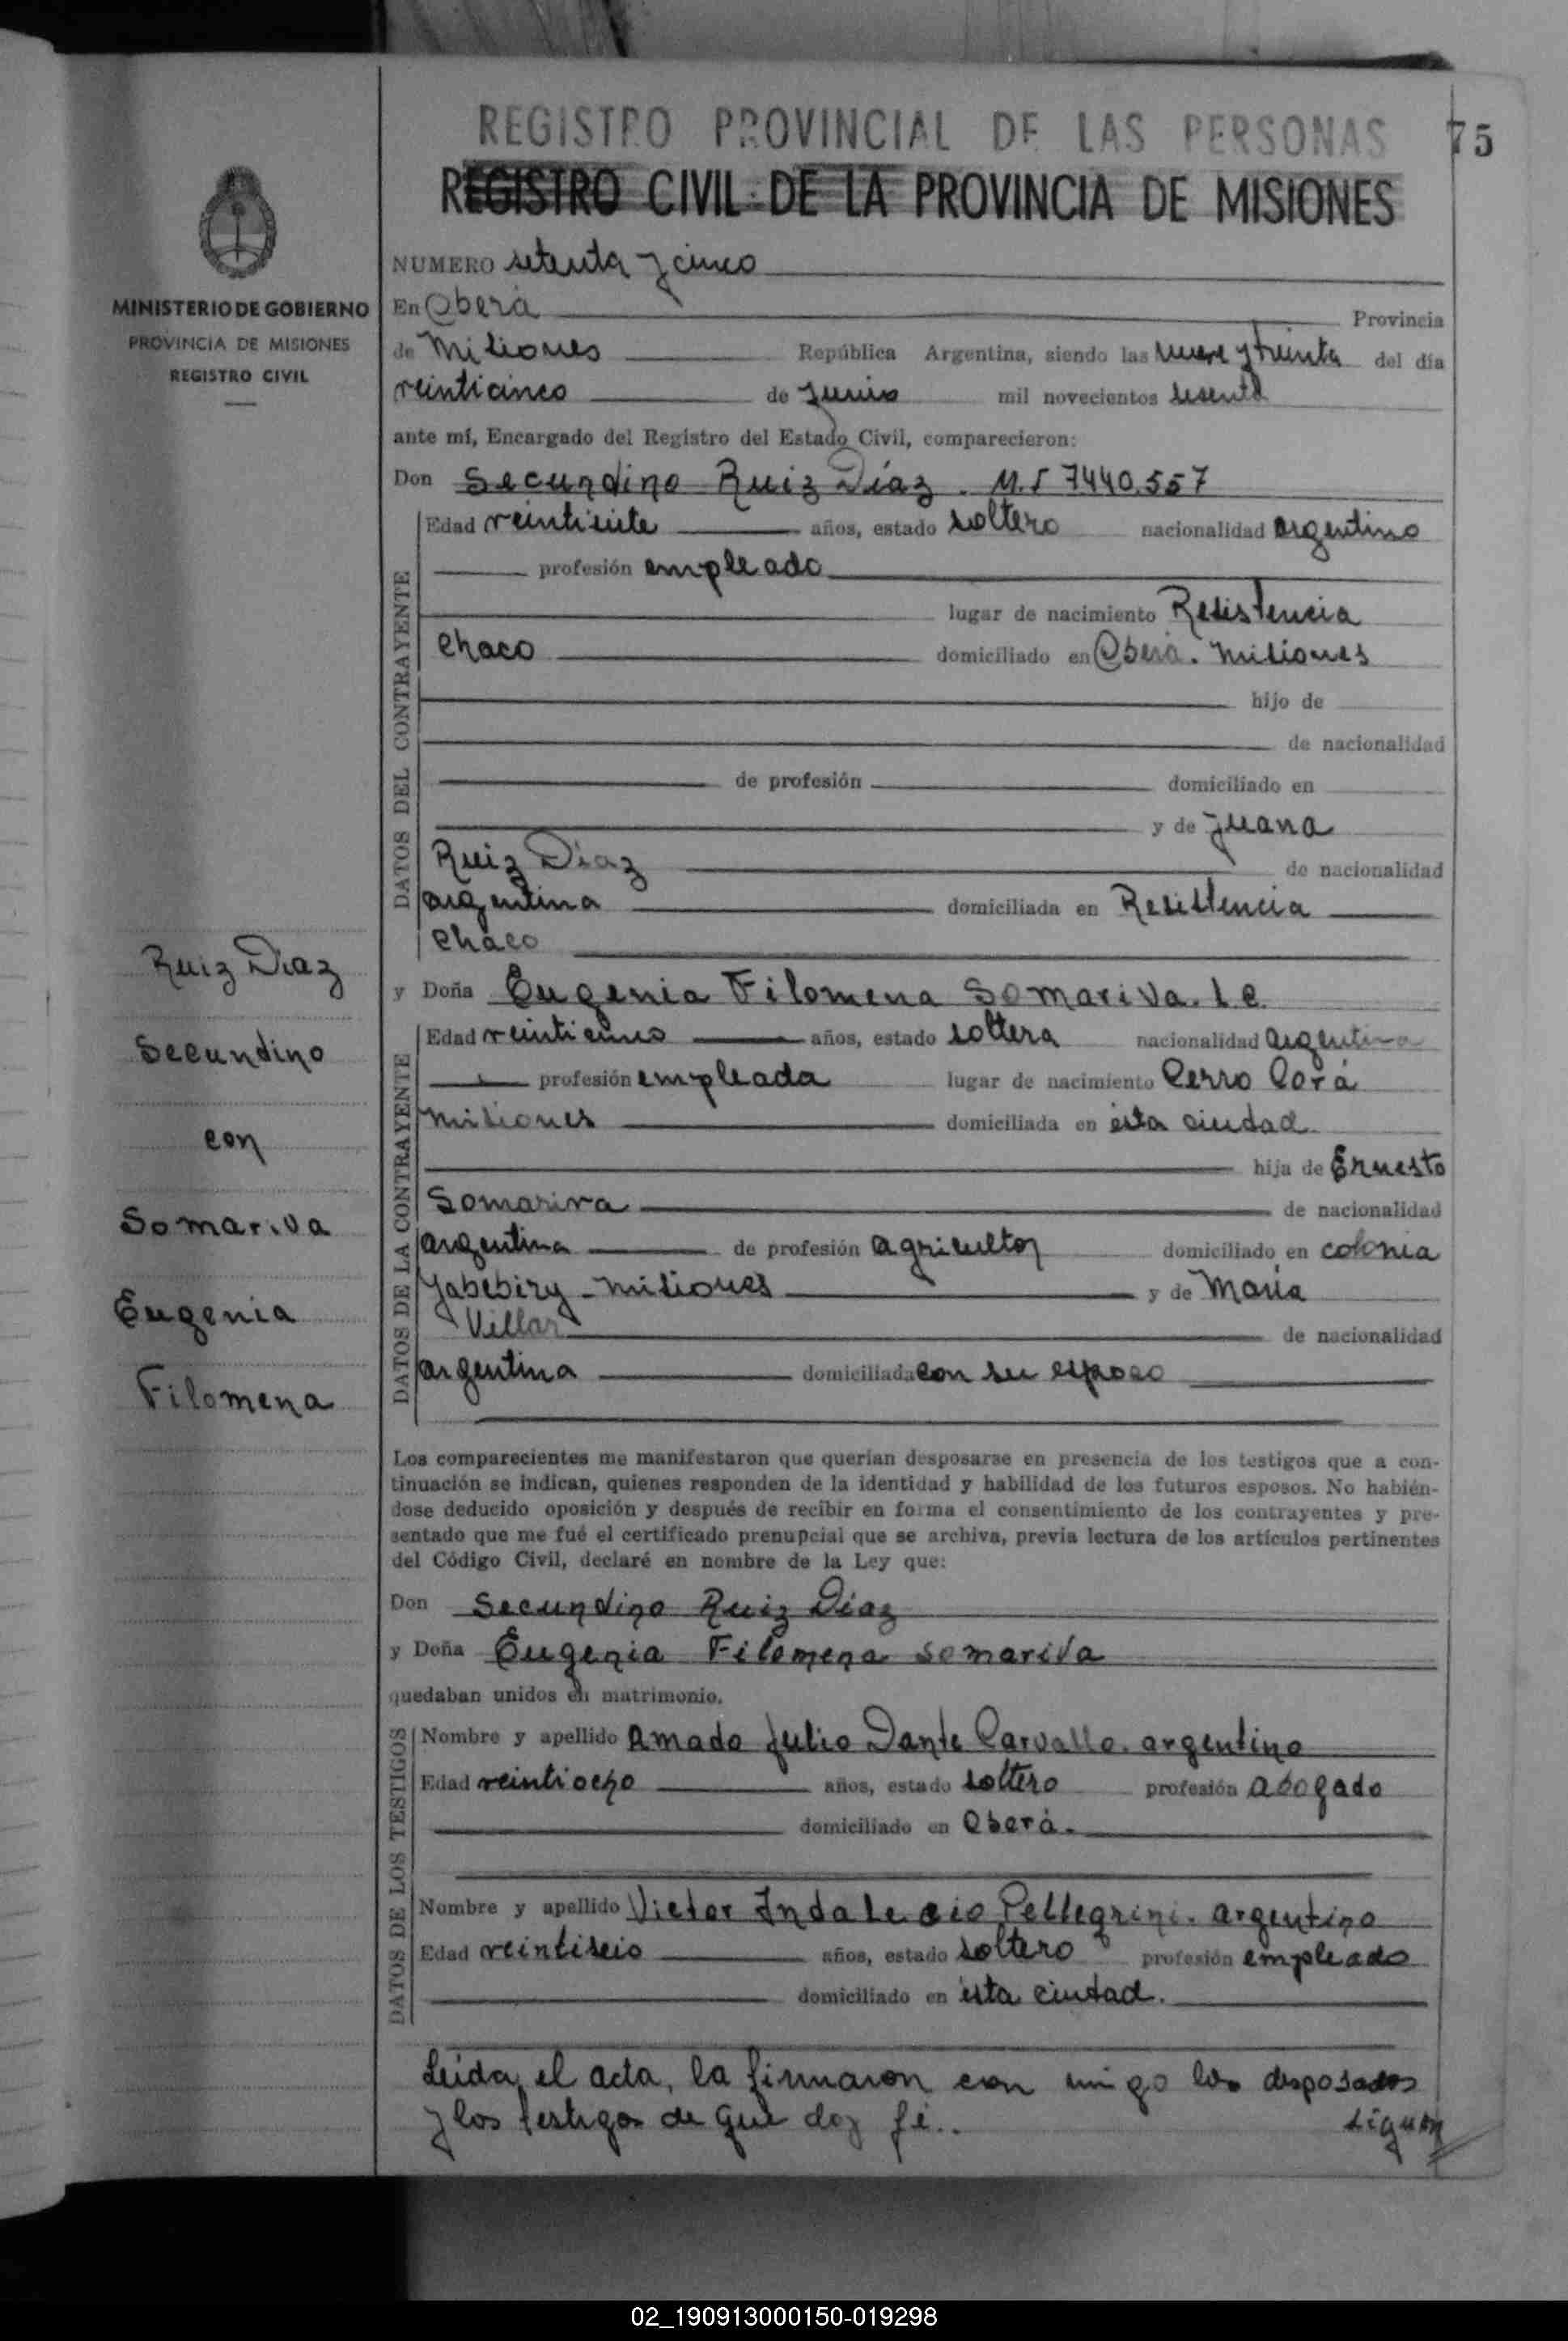 REGISTRO PROVINCIAL DE LAS PERSONAS
75
REGISTRO CIVIL DE LA PROVINCIA DE MISIONES
MINISTERIO DE GOBIERNO
PROVINCIA DE MISIONES
REGISTRO CIVIL
Ruiz Diaz
Secundino
con
Somariva
Eugenia
Filomena
NUMERO setenta y cinco
En Oberá Provincia
de Misiones República Argentina, siendo las nueve y treinta del día
veinticinco de junio mil novecientos sesenta
ante mí, Encargado del Registro del Estado Civil, comparecieron:
Don Secundino Ruiz Díaz. M.I 7440.557
DATOS DEL CONTRAYENTE
Edad veintisiete años, estado soltero nacionalidad argentino
profesión empleado
lugar de nacimiento Resistencia
Chaco domiciliado en Oberá. Misiones
hijo de
de nacionalidad
de profesión domiciliado en
y de Juana
Ruiz Diaz de nacionalidad
argentina domiciliada en Resistencia
Chaco
y Doña Eugenia Filomena Somariva. L.C.
DATOS DE LA CONTRAYENTE
Edad veinticinco años, estado soltera nacionalidad argentina
profesión empleada lugar de nacimiento Cerro Corá
Misiones domiciliada en ésta ciudad
hija de Ernesto
Somariva de nacionalidad
argentina de profesión agricultor domiciliado en colonia
Yabebiry - Misiones y de María
Villar de nacionalidad
argentina domiciliada con su esposo
Los comparecientes me manifestaron que querían desposarse en presencia de los testigos que a con-
tinuación se indican, quienes responden de la identidad y habilidad de los futuros esposos. No habién-
dose deducido oposición y después de recibir en forma el consentimiento de los contrayentes y pre-
sentado que me fué el certificado prenupcial que se archiva, previa lectura de los artículos pertinentes
del Código Civil, declaré en nombre de la Ley que:
Don Secundino Ruiz Díaz
y Doña Eugenia Filomena Somariva
quedaban unidos en matrimonio.
DATOS DE LOS TESTIGOS
Nombre y apellido Amado Julio Dante Carvallo. argentino
Edad veintiocho años, estado soltero profesión abogado
domiciliado en Oberá.
Nombre y apellido Victor Indalecio Pellegrini. argentino
Edad veintiseis años, estado soltero profesión empleado
domiciliado en ésta ciudad.
Leída el acta, la firmaron con migo los desposados
y los testigos de que doy fé.. siguen
02_190913000150-019298